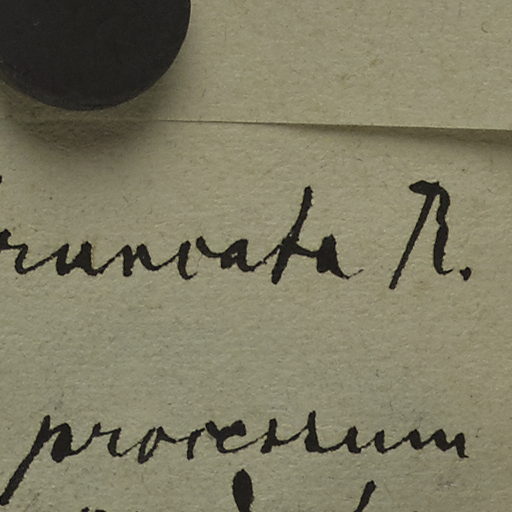 truncata R.
processum